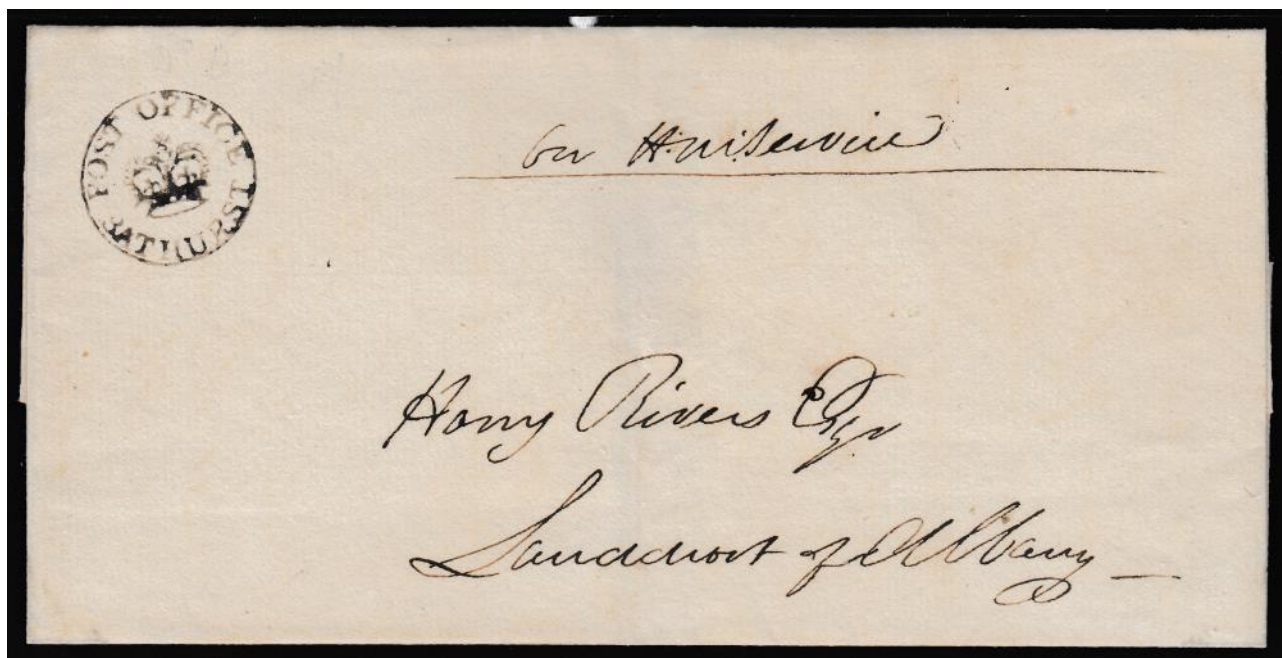 POST OFFICE
BATHURST
On H:M:Service
Harry Rivers Esqr
Landdrost of Albany